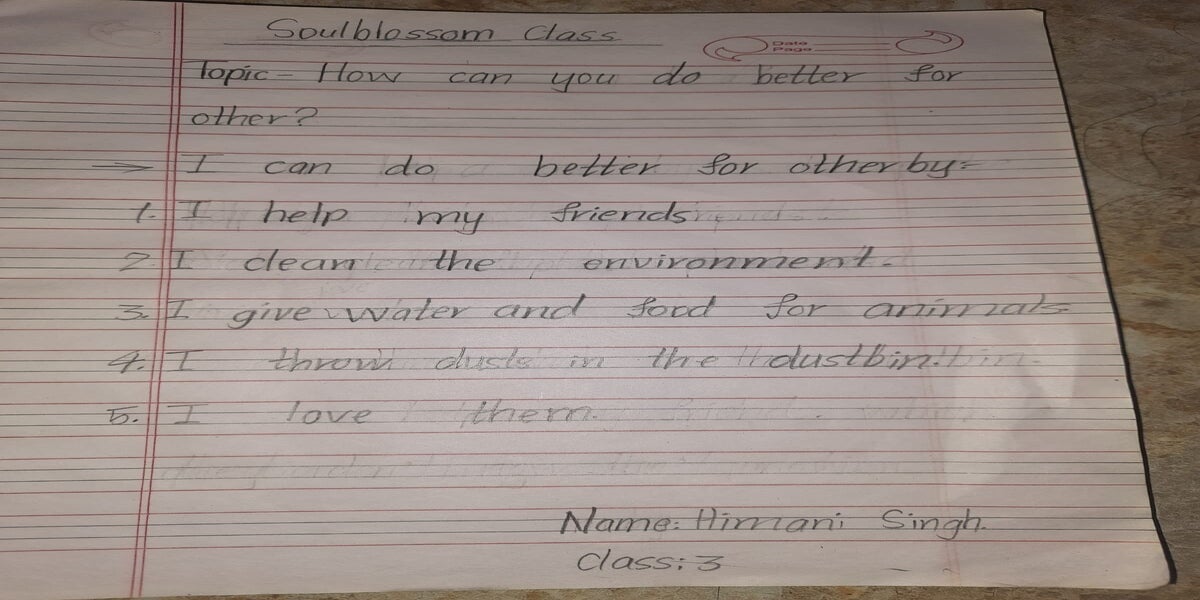 Soulblossom Class
Date
Page
Topic - How can you do better for
other?
→ I can do better for other by:-
1. I help my friends
2. I clean the environment.
3. I give water and food for animals
4. I throw dusts in the dustbin.
5. I love them.
Name: Himani Singh.
Class: 3